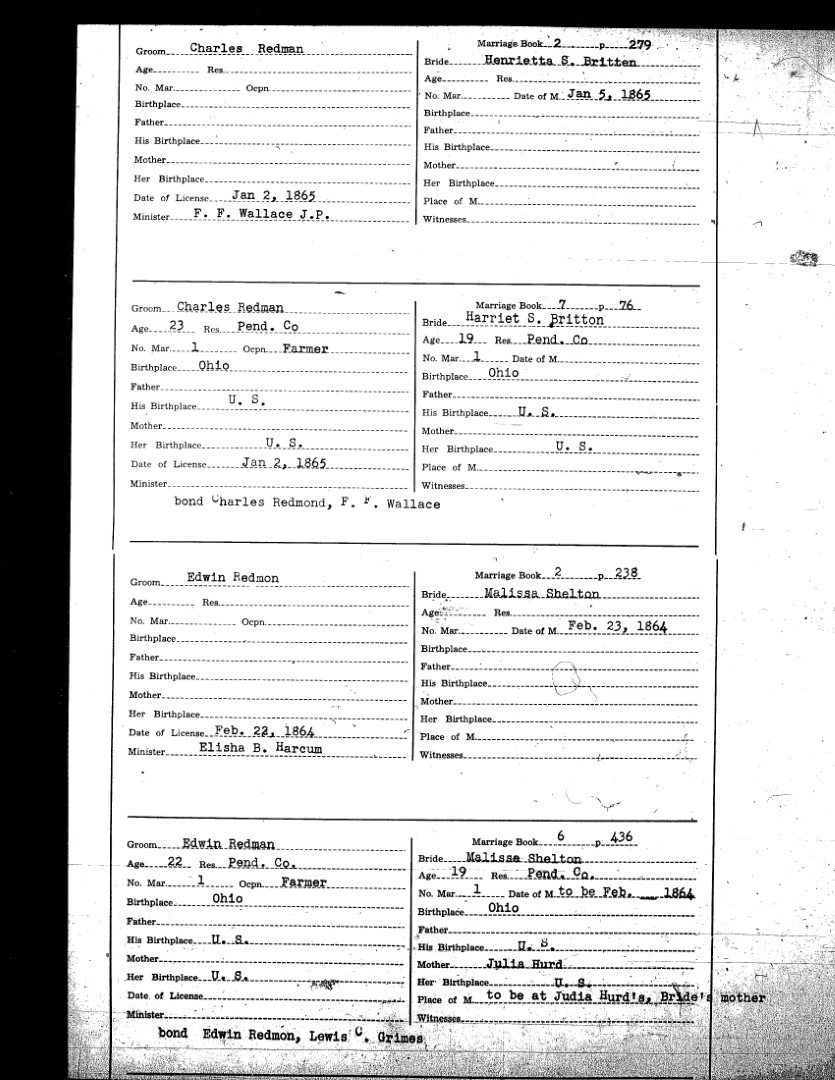 Groom Charles Redman
Age Res.
No. Mar. Ocpn.
Birthplace
Father
His Birthplace
Mother
Her Birthplace
Date of License Jan 2, 1865
Minister F. F. Wallace J.P.
Marriage Book 2 p. 279
Bride Henrietta S. Britten
Age Res.
No. Mar. Date of M. Jan 5, 1865
Birthplace
Father
His Birthplace
Mother
Her Birthplace
Place of M.
Witnesses
Groom Charles Redman
Age 23 Res. Pend. Co
No. Mar. 1 Ocpn. Farmer
Birthplace Ohio
Father
His Birthplace U. S.
Mother
Her Birthplace U. S.
Date of License Jan 2, 1865
Minister
bond Charles Redmond, F. F. Wallace
Marriage Book 7 p. 76
Bride Harriet S. Britton
Age 19 Res. Pend. Co
No. Mar. 1 Date of M.
Birthplace Ohio
Father
His Birthplace U. S.
Mother
Her Birthplace U. S.
Place of M.
Witnesses
Groom Edwin Redmon
Age Res.
No. Mar. Ocpn.
Birthplace
Father
His Birthplace
Mother
Her Birthplace
Date of License Feb. 22, 1864
Minister Elisha B. Harcum
Marriage Book 2 p. 238
Bride Malissa Shelton
Age Res.
No. Mar. Date of M. Feb. 23, 1864
Birthplace
Father
His Birthplace
Mother
Her Birthplace
Place of M.
Witnesses
Groom Edwin Redman
Age 22 Res. Pend. Co.
No. Mar. 1 Ocpn. Farmer
Birthplace Ohio
Father
His Birthplace U. S.
Mother
Her Birthplace U. S.
Date of License
Minister
bond Edwin Redmon, Lewis C. Grimes
Marriage Book 6 p. 436
Bride Malissa Shelton
Age 19 Res. Pend. Co.
No. Mar. 1 Date of M. to be Feb. __ 1864
Birthplace Ohio
Father
His Birthplace U. S.
Mother Julia Hurd
Her Birthplace U. S.
Place of M. to be at Judia Hurd's, Bride's mother
Witnesses